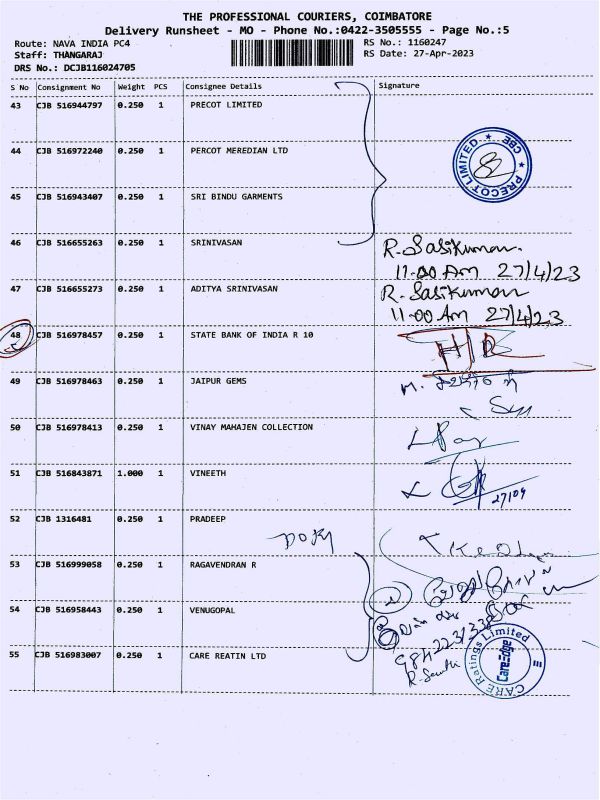 THE PROFESSIONAL COURIERS, COIMBATORE
Delivery Runsheet - MO - Phone No.:0422-3505555 - Page No.:5
Route: NAVA INDIA PC4
RS No.: 1160247
Staff: THANGARAJ
RS Date: 27-Apr-2023
DRS No.: DCJB116024705
S No Consignment No Weight PCS Consignee Details Signature
43 CJB 516944797 0.250 1 PRECOT LIMITED
PRECOT LIMITED ★ CBE ★
44 CJB 516972240 0.250 1 PERCOT MEREDIAN LTD
45 CJB 516943407 0.250 1 SRI BINDU GARMENTS
46 CJB 516655263 0.250 1 SRINIVASAN R. Sasikumar
11.00 Am 27/4/23
47 CJB 516655273 0.250 1 ADITYA SRINIVASAN R. Sasikumar
11.00 Am 27/4/23
48 CJB 516978457 0.250 1 STATE BANK OF INDIA R 10
49 CJB 516978463 0.250 1 JAIPUR GEMS
50 CJB 516978413 0.250 1 VINAY MAHAJEN COLLECTION
51 CJB 516843871 1.000 1 VINEETH
27/04
52 CJB 1316481 0.250 1 PRADEEP
53 CJB 516999058 0.250 1 RAGAVENDRAN R
54 CJB 516958443 0.250 1 VENUGOPAL
55 CJB 516983007 0.250 1 CARE REATIN LTD
CARE Ratings Limited
CareEdge